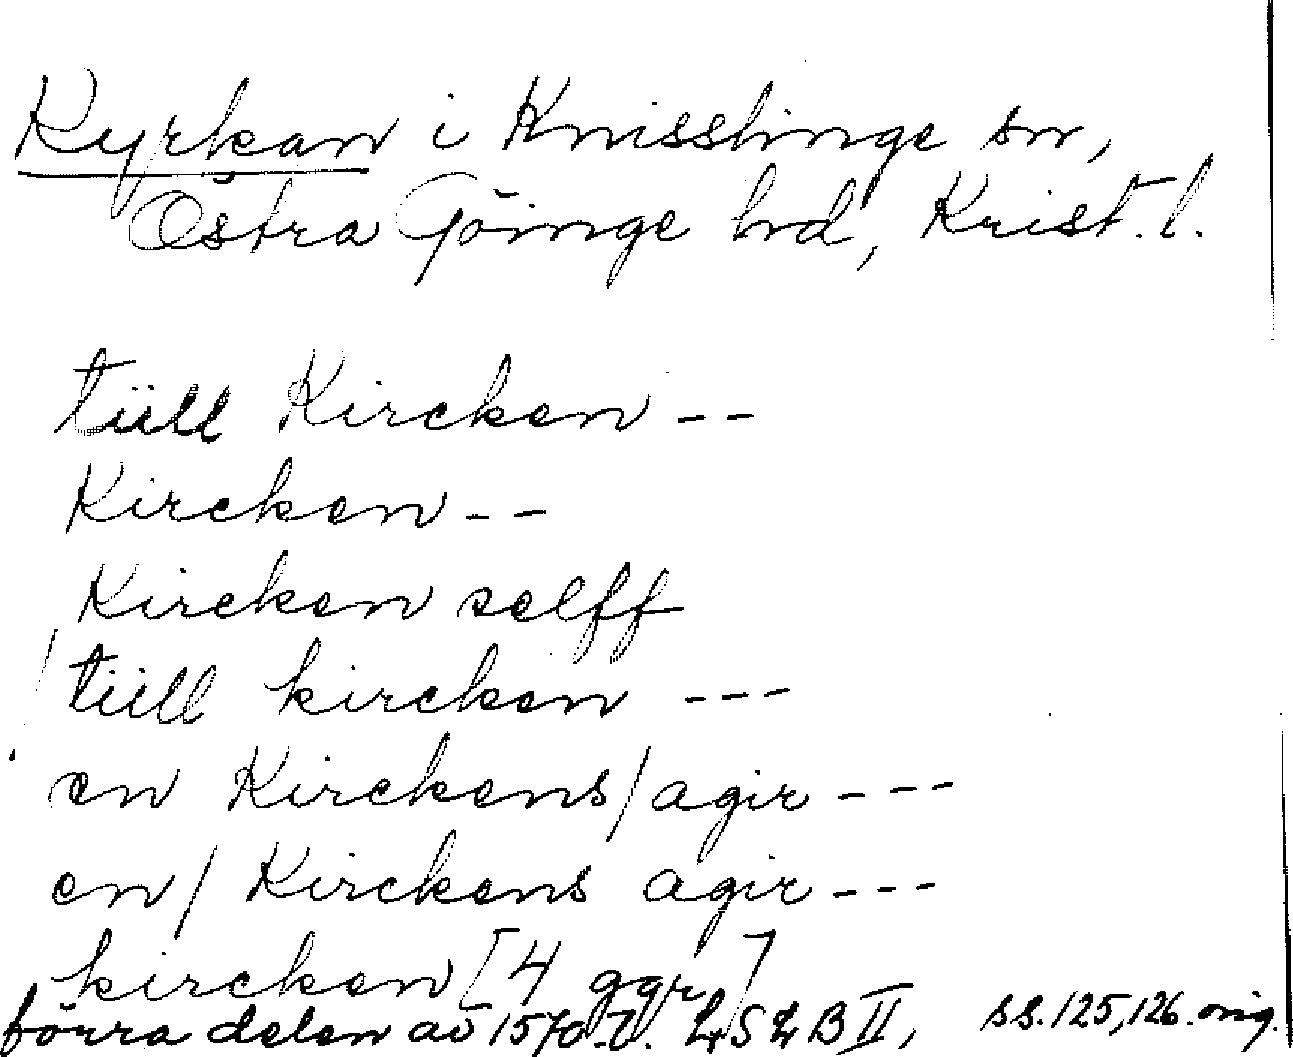 Kyrkan i Knisslinge sn,
Östra Göinge hrd, Krist. l.
tiill Kircken --
Kircken --
Kircken selff
/ tiill kircken ---
en Kirckens / agir ---
en / Kirckens agir ---
kircken [4 ggr]
förra delen av 1570-t. LSLB II, ss. 125, 126. orig.